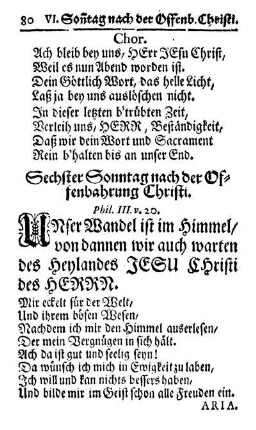 80 VI. Soñtag nach der Offenb. Christi.
Chor.
Ach bleib bey uns, HErr JEsu Christ,
Weil es nun Abend worden ist.
Dein Göttlich Wort, das helle Licht,
Laß ja bey uns auslöschen nicht.
In dieser letzten b'trübten Zeit,
Verleih uns, HERR, Beständigkeit,
Daß wir dein Wort und Sacrament
Rein b'halten bis an unser End.
Sechster Sonntag nach der Of-
fenbahrung Christi.
Phil. III. v. 20.
UNser Wandel ist im Himmel/
von dannen wir auch warten
des Heylandes JESU CHristi
des HERRN.
Mir eckelt für der Welt,
Und ihrem bösen Wesen,
Nachdem ich mir den Himmel auserlesen,
Der mein Vergnügen in sich hält.
Ach da ist gut und seelig seyn!
Da wünsch ich mich in Ewigkeit zu laben,
Ich will und kan nichts bessers haben,
Und bilde mir im Geist schon alle Freuden ein.
ARIA.